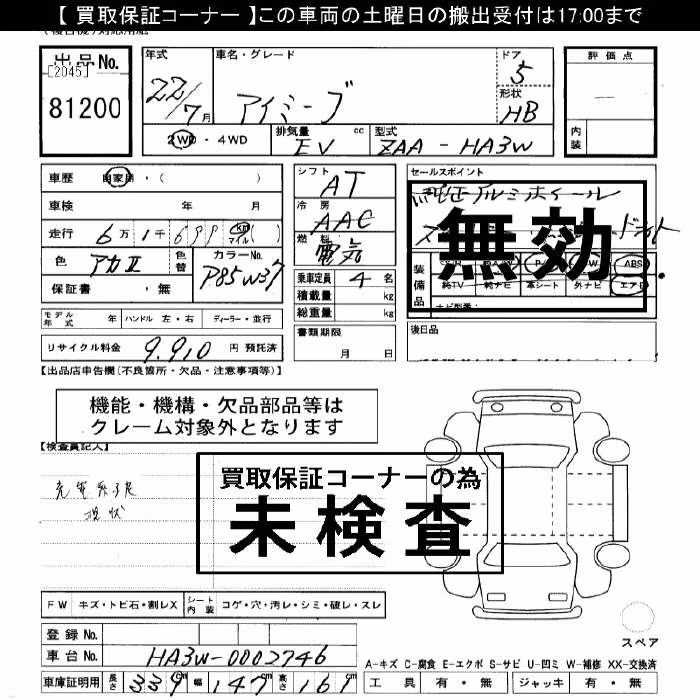 【 買取保証コーナー 】この車両の土曜日の搬出受付は17:00まで
出品No.
[2045]
81200
年式
22/7月
車名・グレード
アイミーブ
ドア
5
形状
HB
評価点
内装
2WD・4WD
排気量 cc
EV
型式
ZAA-HA3W
車歴 自家用・( )
車検 年 月
走行 6万1千699 km マイル( )
色 アカⅡ
色替
カラーNo.
P85W37
保証書 ・無
シフト
AT
冷房
AAC
燃料
電気
乗車定員 4名
積載量 kg
総重量 kg
書類期限
月 日
セールスポイント
純正アルミホイール
無効
装備品
ABS
純TV 純ナビ 革シート 外ナビ エアB
後日品
モデル年式 年 ハンドル 左・右 ディーラー・並行
リサイクル料金 9,910 円 預託済
【出品店申告欄(不良箇所・欠品・注意事項等)】
機能・機構・欠品部品等は
クレーム対象外となります
【検査員記入】
現状
買取保証コーナーの為
未検査
FW キズ・トビ石・割レX シート内装 コゲ・穴・汚レ・シミ・破レ・スレ
登録No.
車台No. HA3W-0002746
車庫証明用 長さ 339cm 幅 147cm 高さ 161
スペア
A-キズ C-腐食 E-エクボ S-サビ U-凹ミ W-補修 XX-交換済
工具 有・無 ジャッキ 有・無